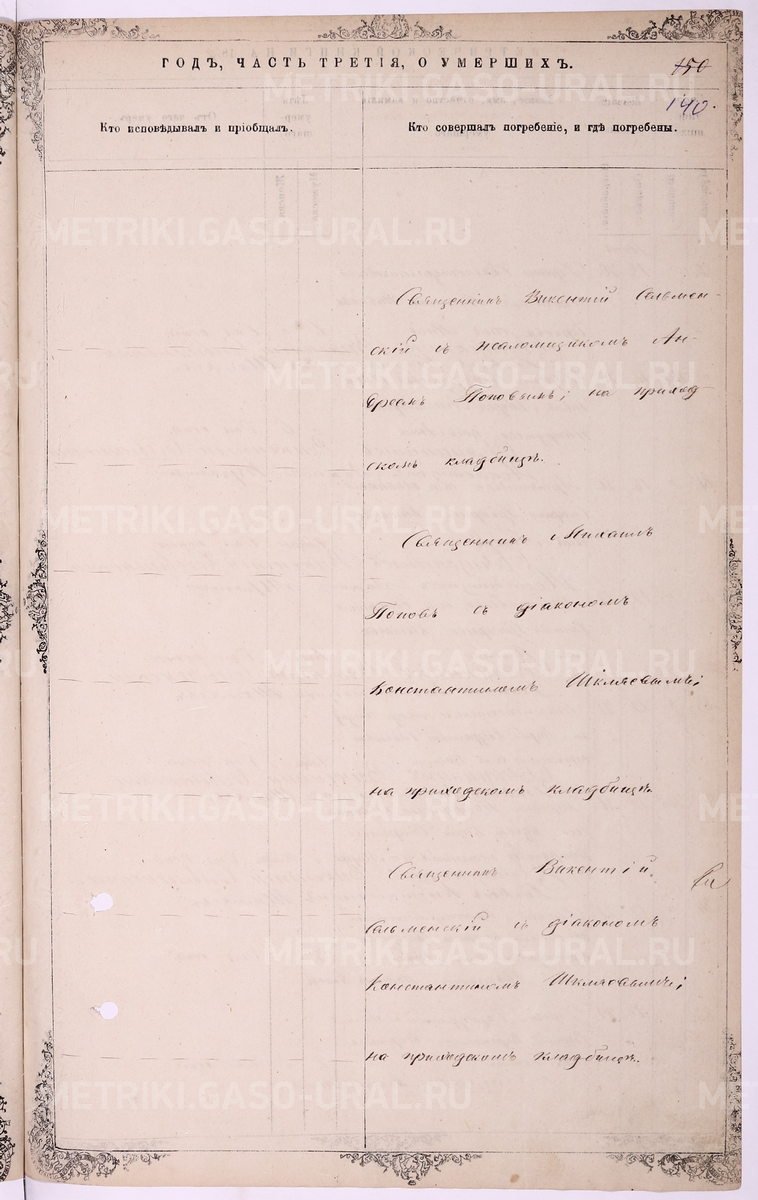 ГОДЪ, ЧАСТЬ ТРЕТІЯ, О УМЕРШИХЪ.
150
140.
Кто исповѣдывалъ и пріобщалъ.
Кто совершалъ погребеніе, и гдѣ погребены.
METRIKI.GASO-URAL.RU
Священникъ Викентій Сельмен-
скій съ псаломщикомъ Ан-
дреемъ Поповымъ; на приход
скомъ кладбищѣ.
Священникъ Михаилъ
Поповъ съ діакономъ
Константиномъ Шкляевымъ;
на приходскомъ кладбищѣ.
Священникъ Викентій
Сельменскій съ діакономъ
Константиномъ Шкляевымъ;
на приходскомъ кладбищѣ.